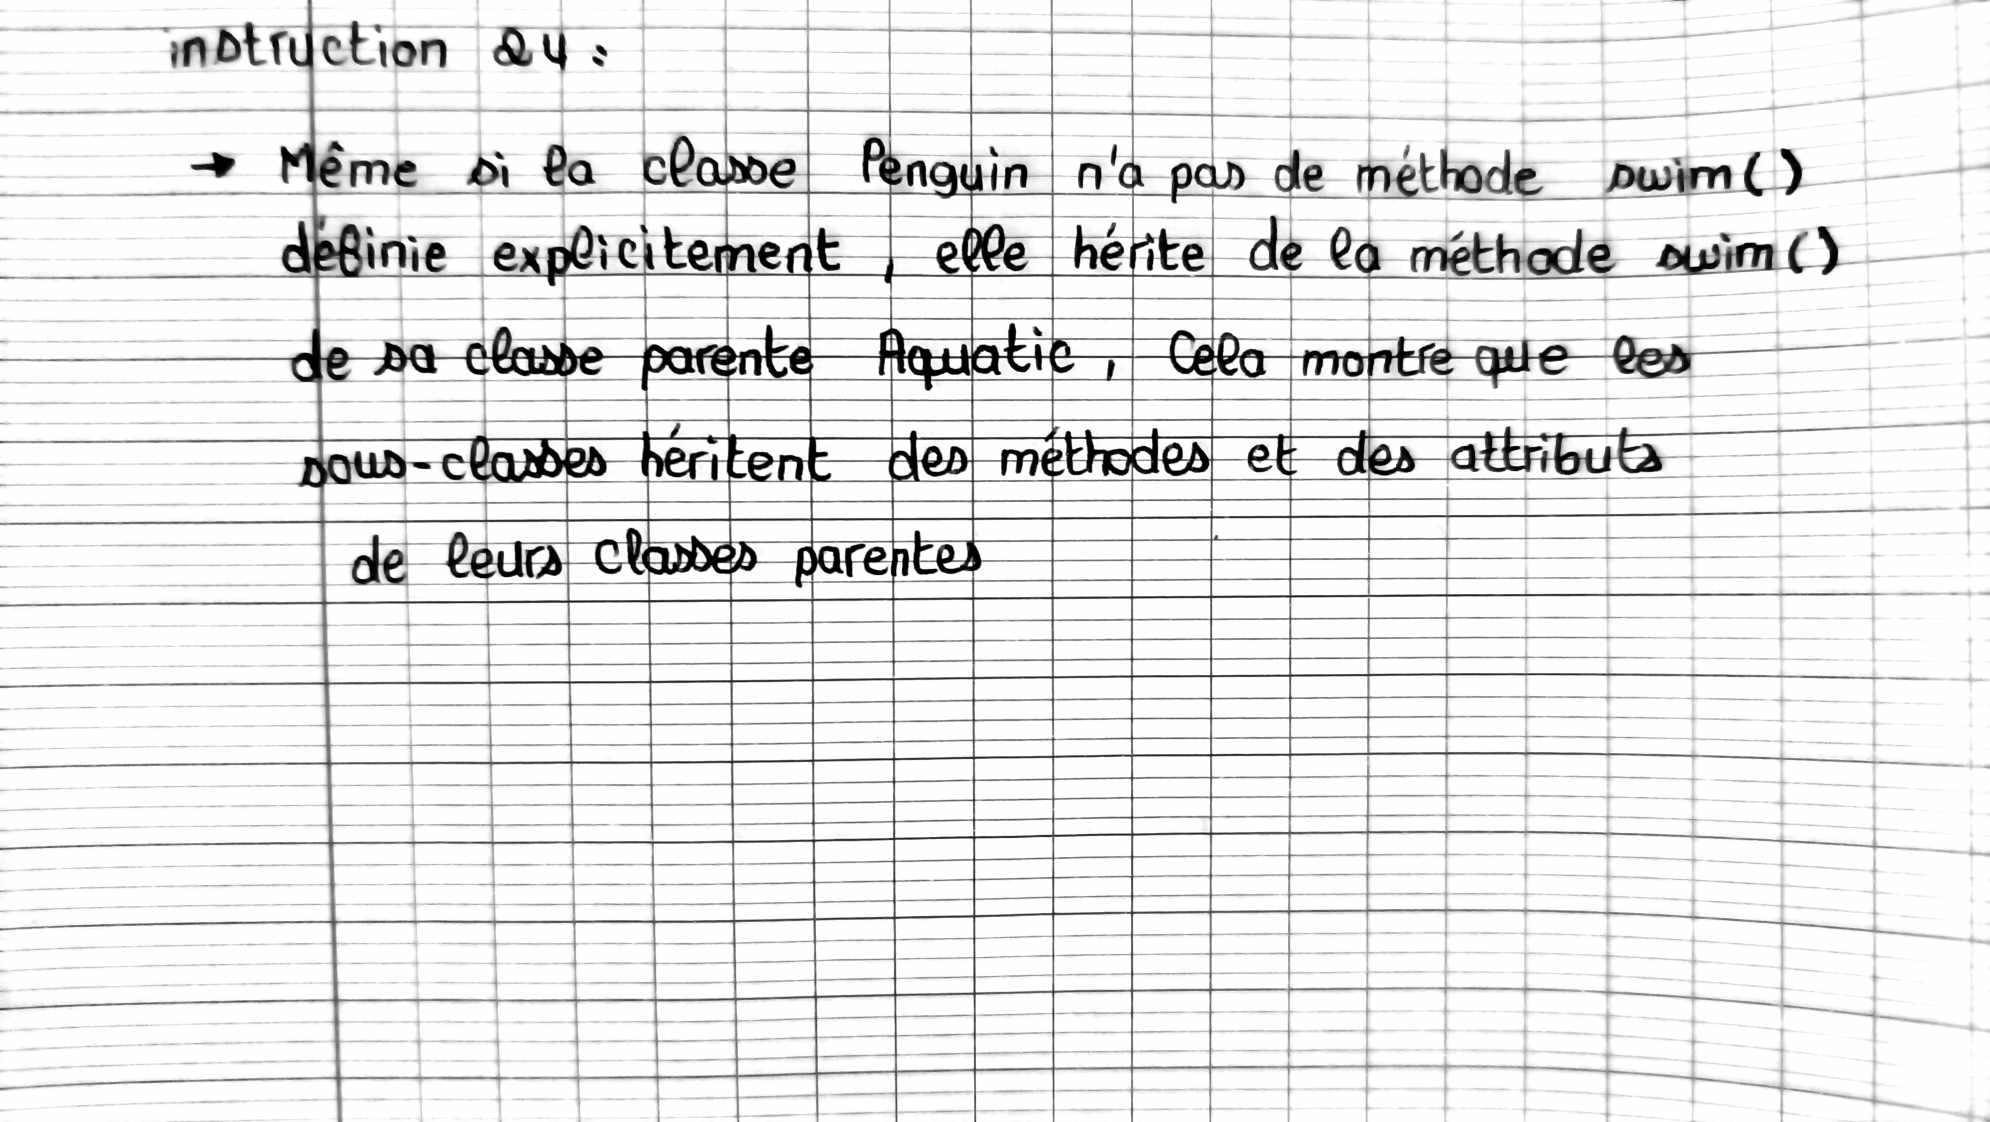 instruction 24 :
→ Même si la classe Penguin n'a pas de méthode swim()
définie explicitement , elle hérite de la méthode swim()
de sa classe parente Aquatic , Cela montre que les
sous-classes héritent des méthodes et des attributs
de leurs classes parentes